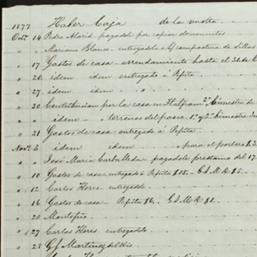 1877 Haber Caja de la vuelta
Octe 14 Pedro Abad. pagado por copiar documentos
" " Mariano Blanco. entregado compostura de sillas
" 17 Gastos de casa - arrendamiento hasta el 31 de
" 20 idem idem entregado á Pepita
" 27 idem idem "
" 30 Contribucion por la casa en Tlalpam 2º bimestre de
" " idem " terrenos del paseo. 1º y 2º bimestre
" 31 Gastos de casa entregado á Pepita
Nove 2 idem idem para el portero
" " José Maria pagado
" 10 Gastos de casa entregado á Pepita $15. G. d. M. K. $5.
" 12 Carlos Flores. entregado
" 16 Gastos de casa Pepita $6. G. d. M. K. $1.
" 20
" 27 Carlos Flores. entregado
" 28 G. J. Martinez del Rio